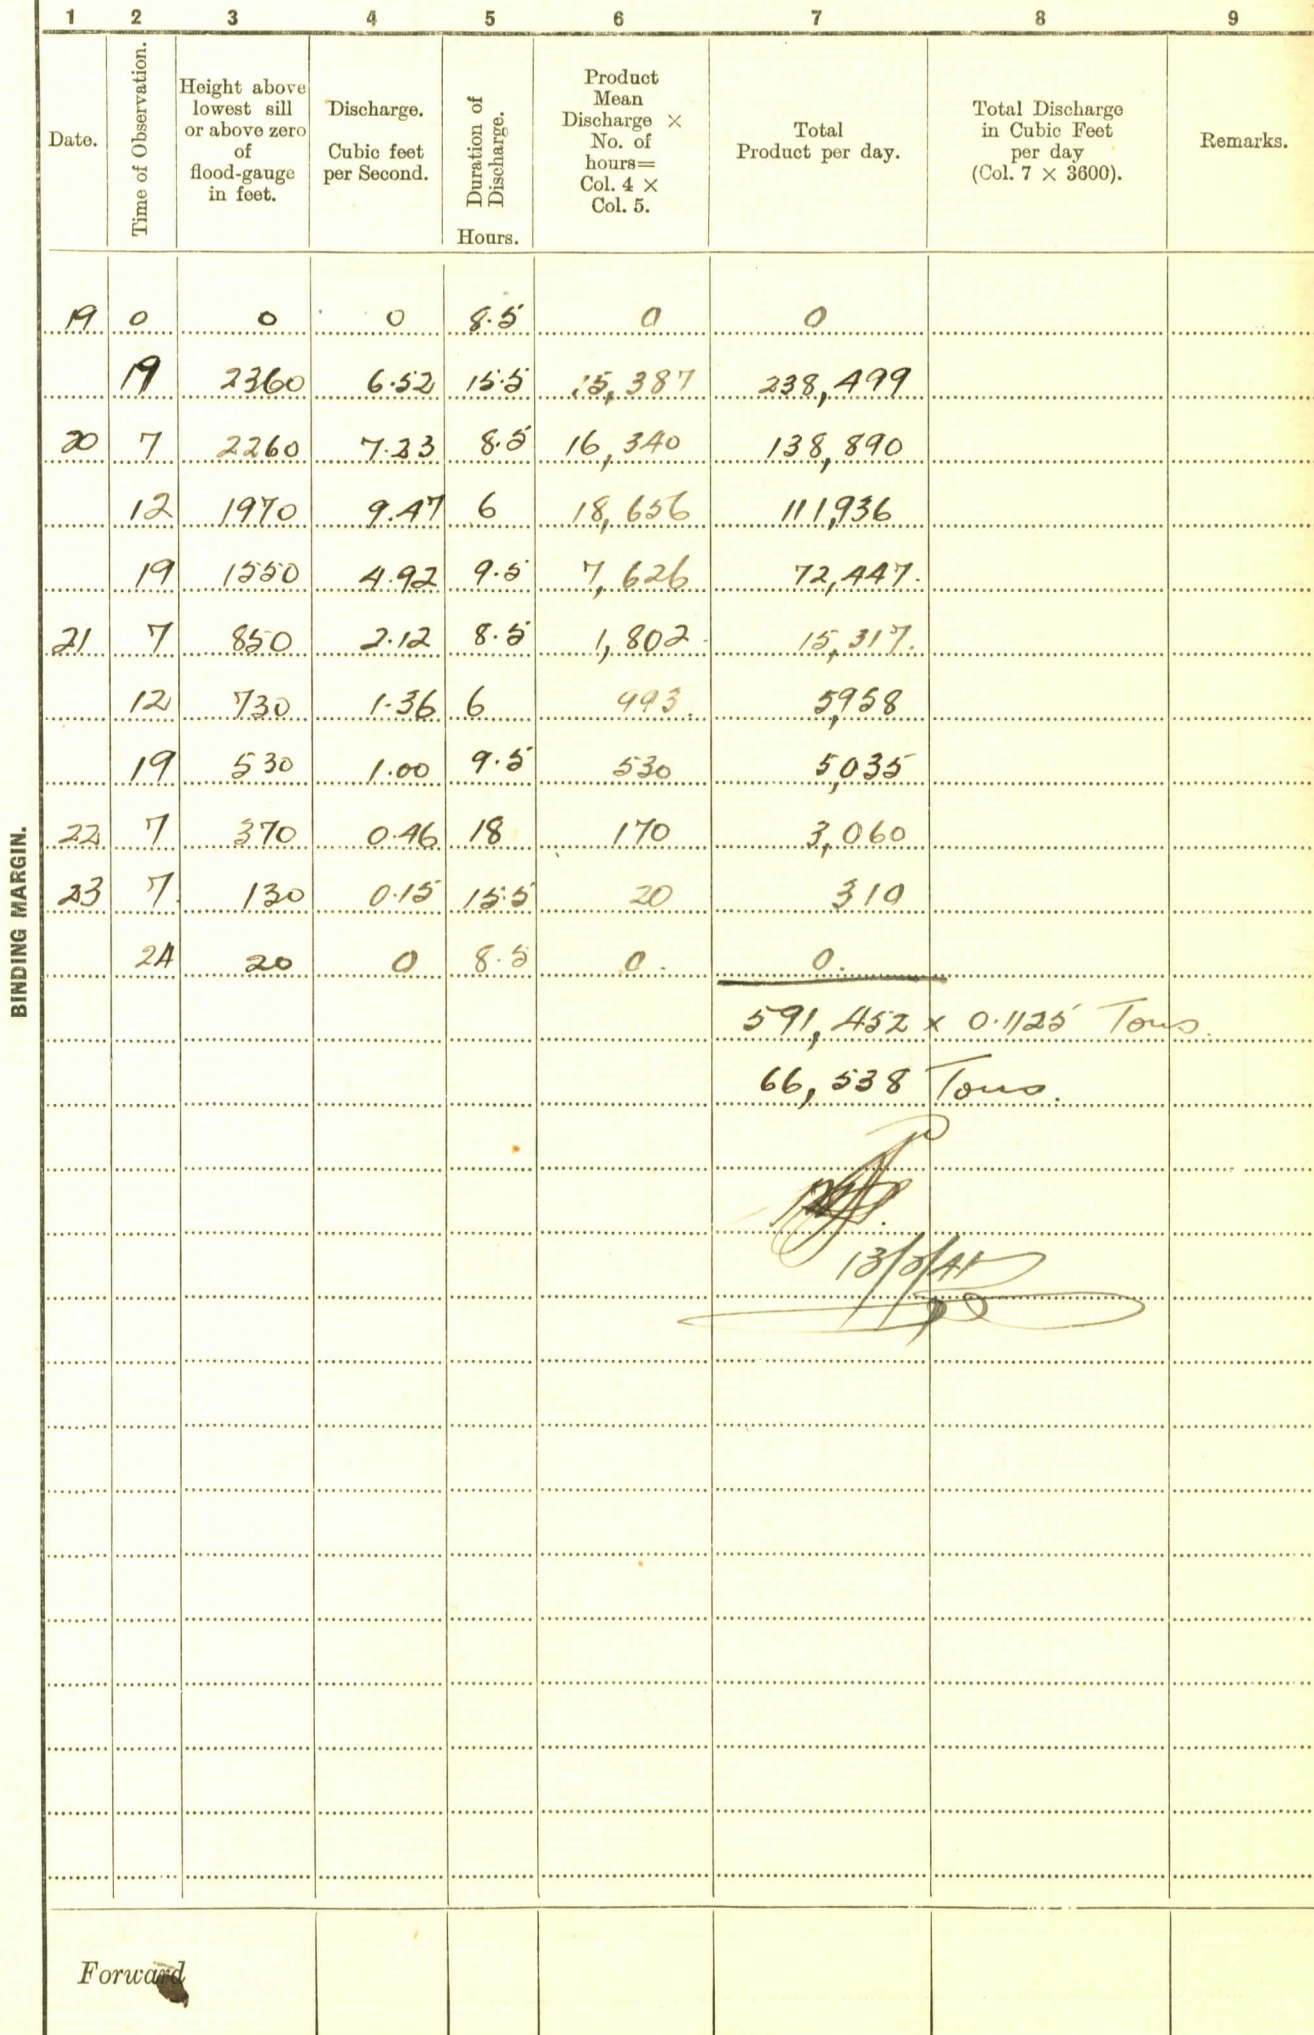 1 2 3 4 5 6 7 8 9
Date. Time of Observation. Height above lowest sill or above zero of flood-gauge in feet. Discharge. Cubic feet per Second. Duration of Discharge. Hours. Product Mean Discharge × No. of hours= Col. 4 × Col. 5. Total Product per day. Total Discharge in Cubic Feet per day (Col. 7 × 3600). Remarks.
19 0 0 0 8.5 0 0
19 2360 6.52 15.5 15,387 238,499
20 7 2260 7.23 8.5 16,340 138,890
12 1970 9.47 6 18,656 111,936
19 1550 4.92 9.5 7,626 72,447.
21 7 850 2.12 8.5 1,802. 15,317.
12 730 1.36 6 993. 5,958
19 530 1.00 9.5 530 5,035
22 7 370 0.46 18 170 3,060
23 7. 130 0.15 15.5 20 310
24 20 0 8.5 0. 0.
591,452 x 0.1125 Tons.
66,538 Tons.
13/3/41
Forward
BINDING MARGIN.